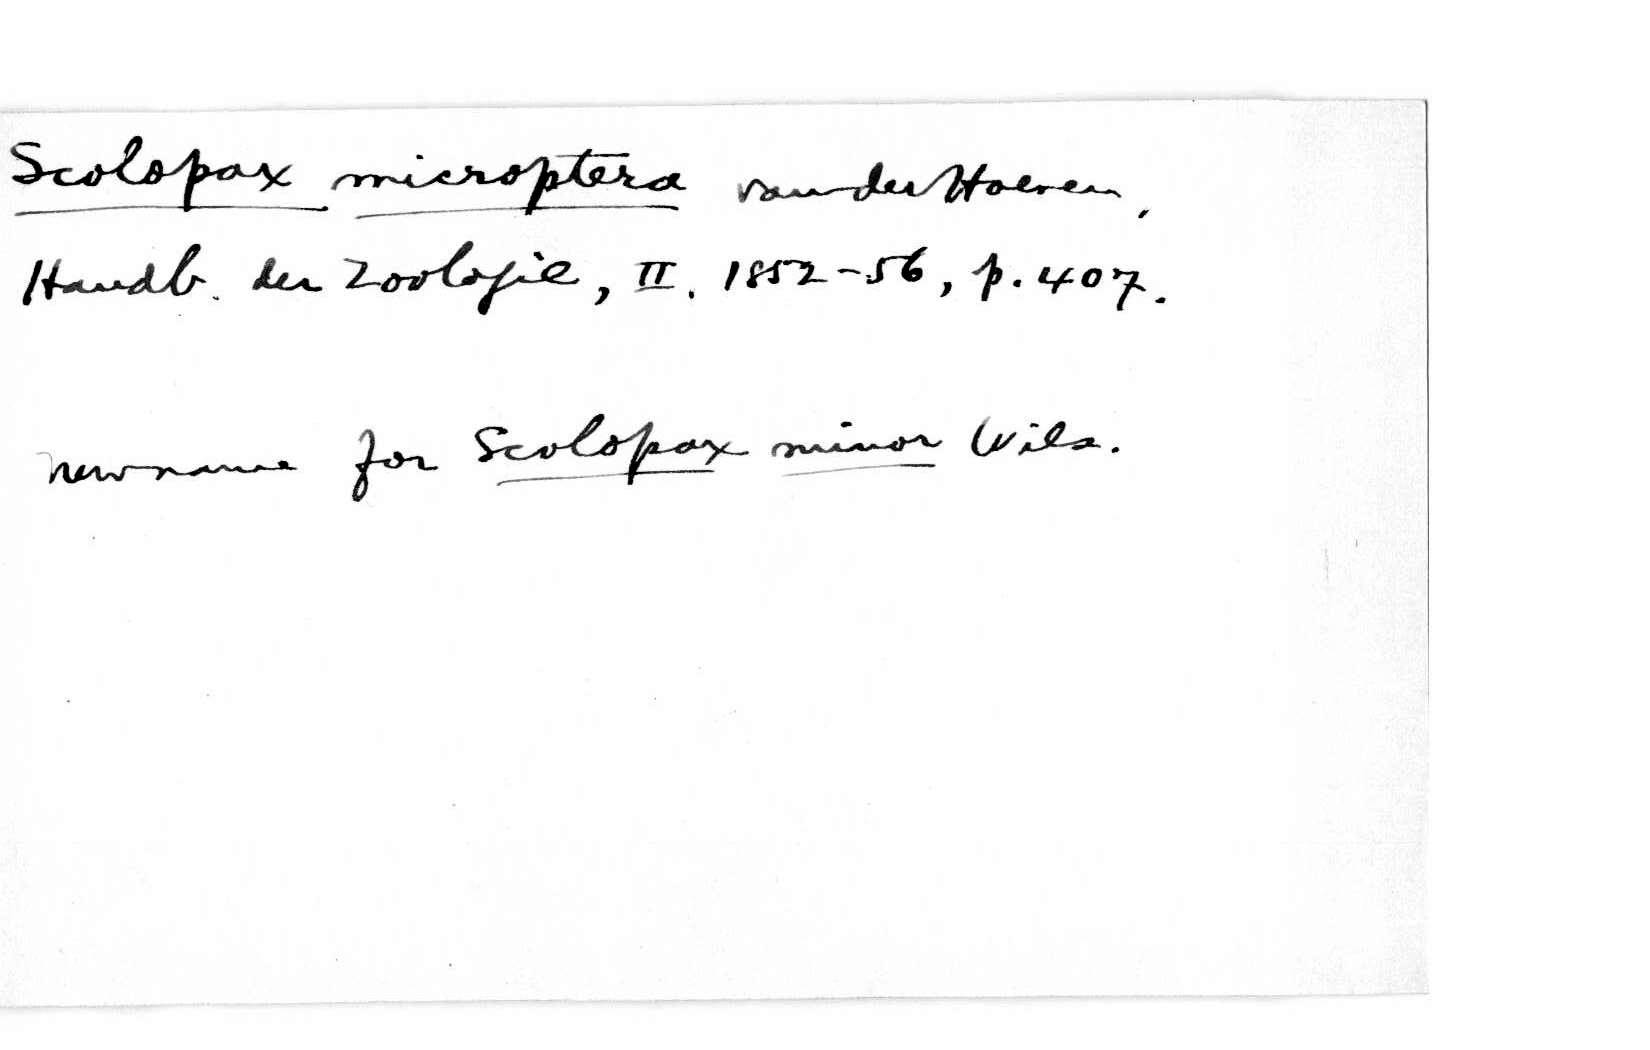 Scolopax microptera van der Hoeven,
Handb. der Zoologie, II. 1852-56, p. 407.
new name for Scolopax minor Wils.